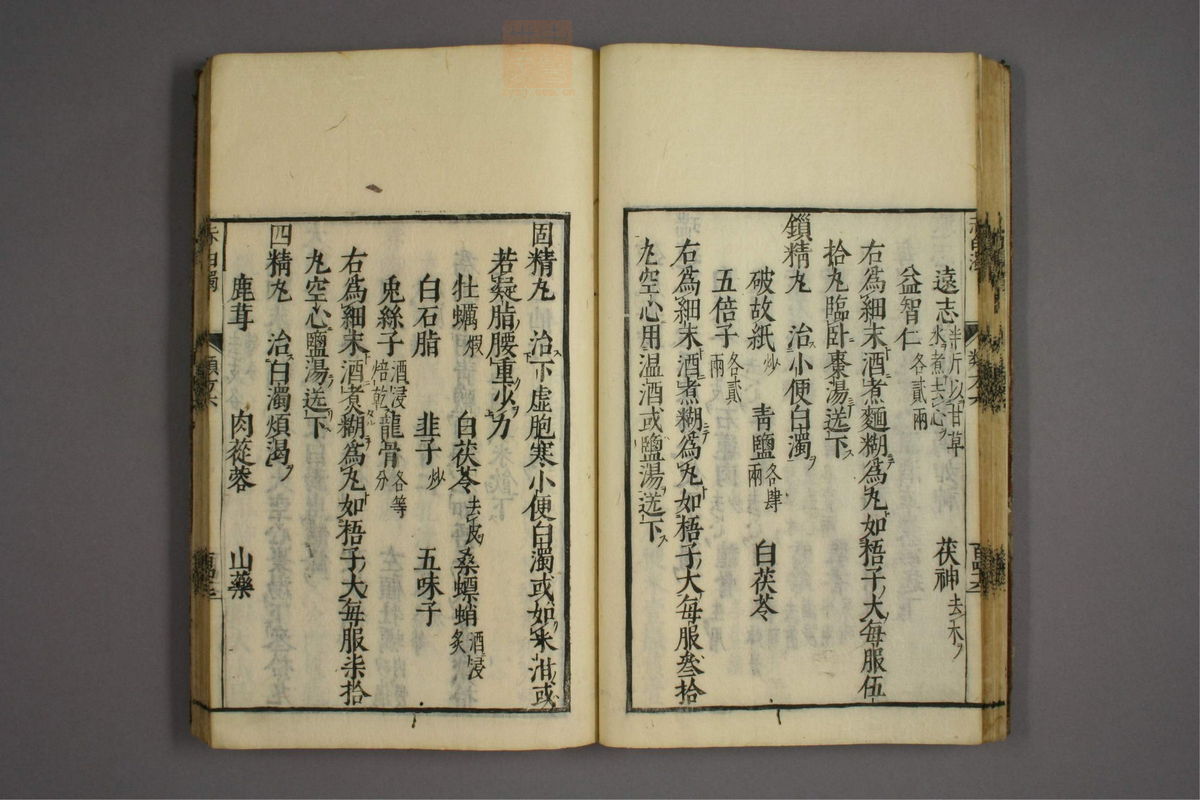 遠志半斤以甘草水煮去心 茯神去木
益智仁各貳兩
右爲細末酒煮麵糊爲丸如梧子大每服伍
拾丸臨卧棗湯送下
鎖精丸 治小便白濁
破故紙炒 青鹽各肆兩 白茯苓
五倍子各貳兩
右爲細末酒煮糊爲丸如梧子大每服叁拾
丸空心用温酒或鹽湯送下
固精丸 治下虚胞寒小便白濁或如米泔或
若凝脂腰重少力
牡蠣煆 白茯苓去皮 桑螵蛸酒浸炙
白石脂 韭子炒 五味子
兎絲子酒浸焙乾 龍骨各等分
右爲細末酒煮糊爲丸如梧子大每服柒拾
丸空心鹽湯送下
四精丸 治白濁煩渴
鹿茸 肉蓯蓉 山藥
赤白濁